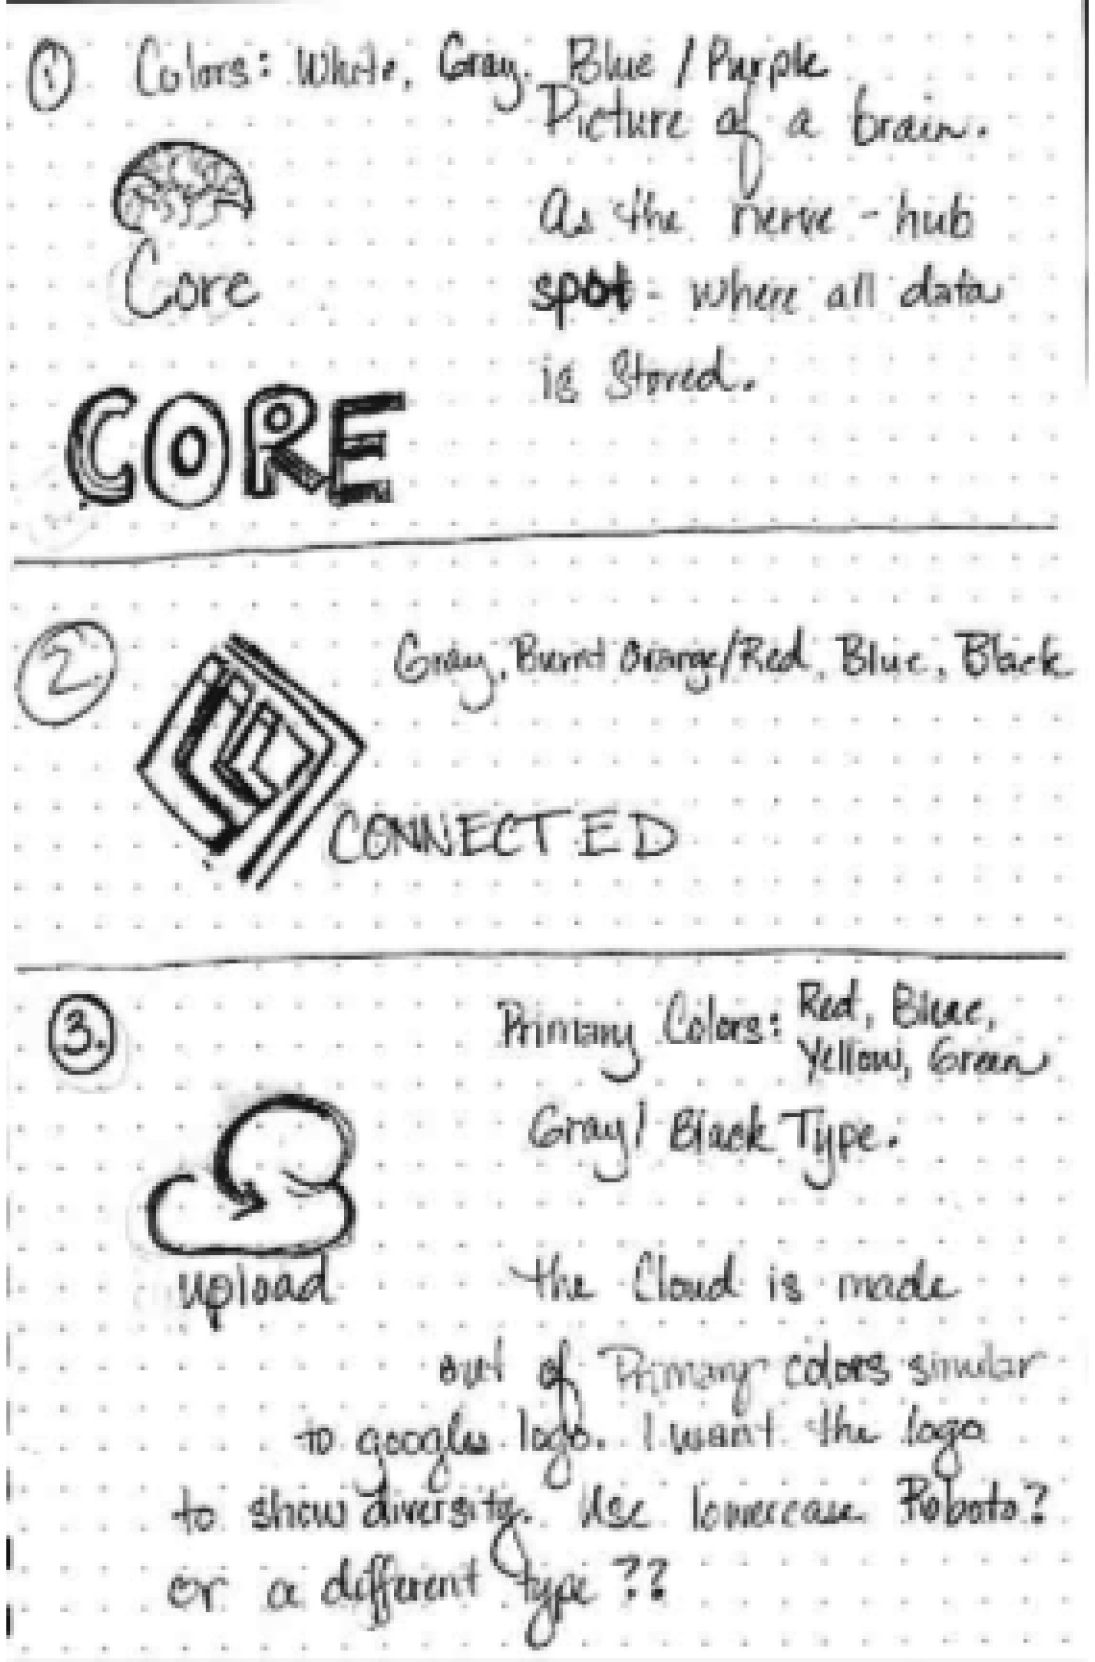 1 Colors: White, Gray, Blue / Purple
Picture of a brain.
As the nerve - hub
spot - where all data
is Stored.
Core
CORE
2. Gray, Burnt Orange/Red, Blue, Black
CONNECTED
3. Primary Colors: Red, Blue,
Yellow, Green
Gray/ Black Type.
upload
the Cloud is made
out of Primary colors similar
to googles logo. I want the logo
to show diversity. Use lowercase Roboto?
or a different type ??